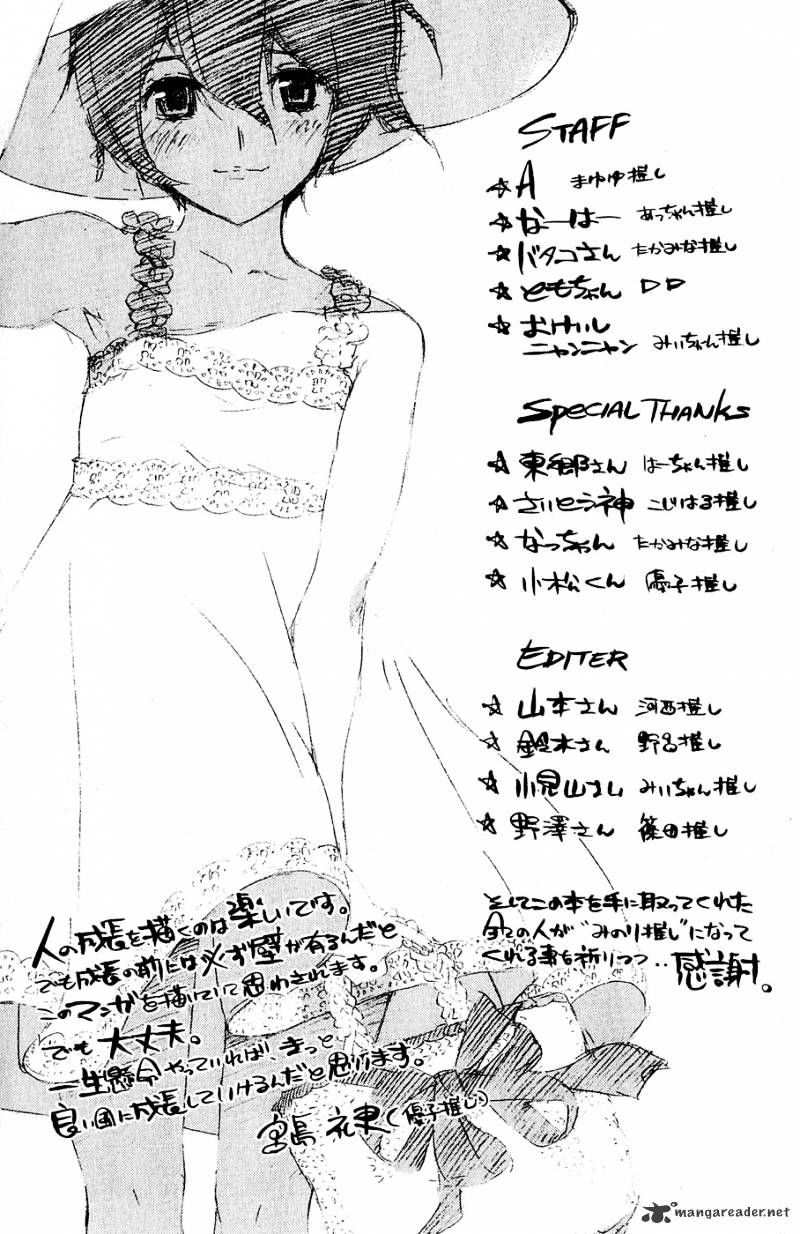 STAFF
☆ A まゆゆ推し
☆ なーはー あっちゃん推し
☆ バタコさん たかみな推し
☆ ともちゃん DD
☆ おけいし
ニャンニャン みぃちゃん推し
SPECIAL THANKS
☆ 東郷さん はーちゃん推し
☆ さいとう神 こじはる推し
☆ なっちゃん たかみな推し
☆ 小松くん 優子推し
EDITER
☆ 山本さん 河西推し
☆ 鈴木さん 野呂推し
☆ 小見山さん みぃちゃん推し
☆ 野澤さん 篠田推し
そしてこの本を手に取ってくれた
全ての人が“みのり推し”になって
くれる事を祈りつつ‥感謝。
人の成長を描くのは楽しいです。
でも成長の前には必ず壁が有るんだと
このマンガを描いていて思わされます。
でも大丈夫。
一生懸命やっていれば、きっと
良い風に成長していけるんだと思います。
宮島礼吏（優子推し）
mangareader.net